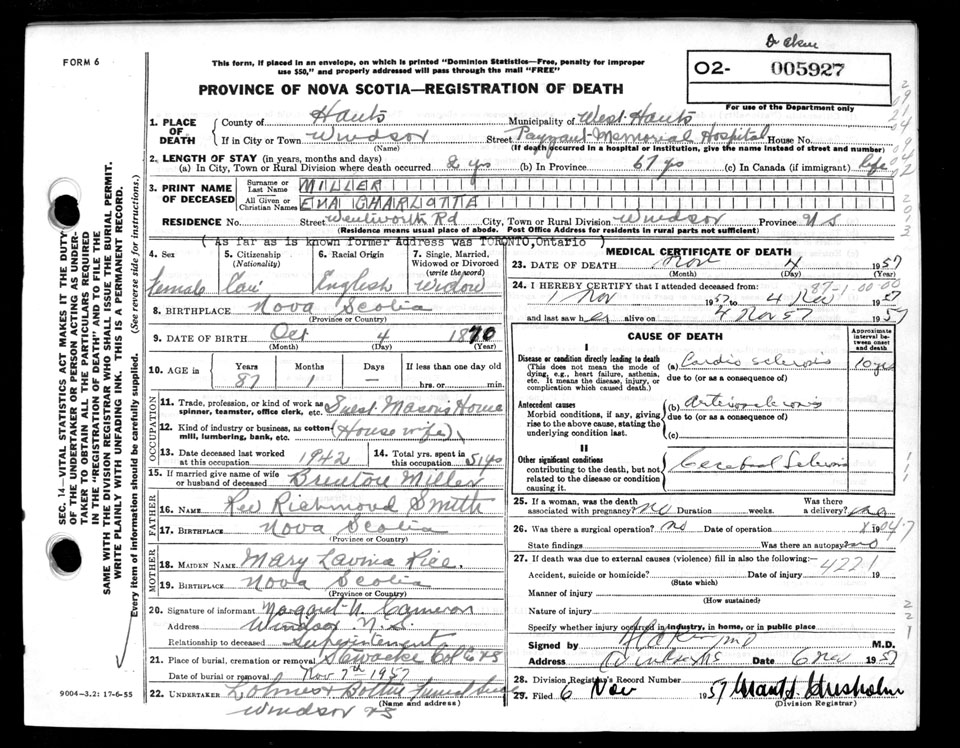 Dr Aken
FORM 6
This form, if placed in an envelope, on which is printed "Dominion Statistics—Free, penalty for improper
use $50," and properly addressed will pass through the mail "FREE"
O2- 005927
For use of the Department only
PROVINCE OF NOVA SCOTIA—REGISTRATION OF DEATH
1. PLACE OF DEATH { County of Hants Municipality of West Hants
If in City or Town Windsor Street Payzant Memorial Hospital House No.
(Name) (If death occurred in a hospital or institution, give the name instead of street and number)
2. LENGTH OF STAY (in years, months and days)
(a) In City, Town or Rural Division where death occurred 2 ys (b) In Province 67 yo (c) In Canada (if immigrant) life
3. PRINT NAME OF DECEASED { Surname or Last Name MILLER
All Given or Christian Names EVA CHARLOTTE
RESIDENCE No. Street Wentworth Rd City, Town or Rural Division Windsor Province N S
(Residence means usual place of abode. Post Office Address for residents in rural parts not sufficient)
( As far as is known former Address was TORONTO,Ontario )
4. Sex female
5. Citizenship (Nationality) Can
6. Racial Origin English
7. Single, Married, Widowed or Divorced (write the word) Widow
8. BIRTHPLACE Nova Scotia
(Province or Country)
9. DATE OF BIRTH Oct 4 1870
(Month) (Day) (Year)
10. AGE in { Years 87 Months 1 Days — If less than one day old
hrs. or min.
OCCUPATION
11. Trade, profession, or kind of work as
spinner, teamster, office clerk, etc. Guest Masons Home
12. Kind of industry or business, as cotton-
mill, lumbering, bank, etc. (House wife)
13. Date deceased last worked at this occupation 1942
14. Total yrs. spent in this occupation 51 yo
15. If married give name of wife
or husband of deceased Brenton Miller
FATHER
16. NAME Rev Richmond Smith
17. BIRTHPLACE Nova Scotia
(Province or Country)
MOTHER
18. MAIDEN NAME Mary Lavina Rice
19. BIRTHPLACE Nova Scotia
(Province or Country)
20. Signature of informant Margaret N. Cameron
Address Windsor N.S.
Relationship to deceased Superintendent
21. Place of burial, cremation or removal Stewiacke Col Co NS
Date of burial or removal Nov 7th 1957
22. UNDERTAKER
Windsor NS (Name and address)
MEDICAL CERTIFICATE OF DEATH
23. DATE OF DEATH Nov 4 1957
(Month) (Day) (Year)
87-1 00 00
24. I HEREBY CERTIFY that I attended deceased from:
1 Nov 1957 to 4 Nov 1957
and last saw her alive on 4 Nov 57 1957
CAUSE OF DEATH
Approximate interval between onset and death
I
Disease or condition directly leading to death
(This does not mean the mode of dying, e.g., heart failure, asthenia, etc. It means the disease, injury, or complication which caused death.)
(a) Cardio sclerosis 10 yrs
due to (or as a consequence of)
Antecedent causes
Morbid conditions, if any, giving rise to the above cause, stating the underlying condition last.
(b) Arteriosclerosis
due to (or as a consequence of)
(c)
II
Other significant conditions
contributing to the death, but not related to the disease or condition causing it.
Cerebral Sclerosis
25. If a woman, was the death associated with pregnancy? no Duration weeks. Was there a delivery? no
26. Was there a surgical operation? no Date of operation 19
State findings Was there an autopsy? no
27. If death was due to external causes (violence) fill in also the following:— 4221
Accident, suicide or homicide? Date of injury 19
(State which)
Manner of injury
(How sustained)
Nature of injury
Specify whether injury occurred in industry, in home, or in public place
Signed by M.D.
Address Windsor NS Date 6 Nov 1957
28. Division Registrar's Record Number
29. Filed 6 Nov 1957 Grant S. Chisholm
(Division Registrar)
SEC. 14—VITAL STATISTICS ACT MAKES IT THE DUTY
OF THE UNDERTAKER OR PERSON ACTING AS UNDER-
TAKER TO OBTAIN ALL THE PARTICULARS REQUIRED
IN THE "REGISTRATION OF DEATH" AND TO FILE THE
SAME WITH THE DIVISION REGISTRAR WHO SHALL ISSUE THE BURIAL PERMIT.
WRITE PLAINLY WITH UNFADING INK. THIS IS A PERMANENT RECORD.
Every item of information should be carefully supplied. (See reverse side for instructions.)
9004-3.2: 17-6-55